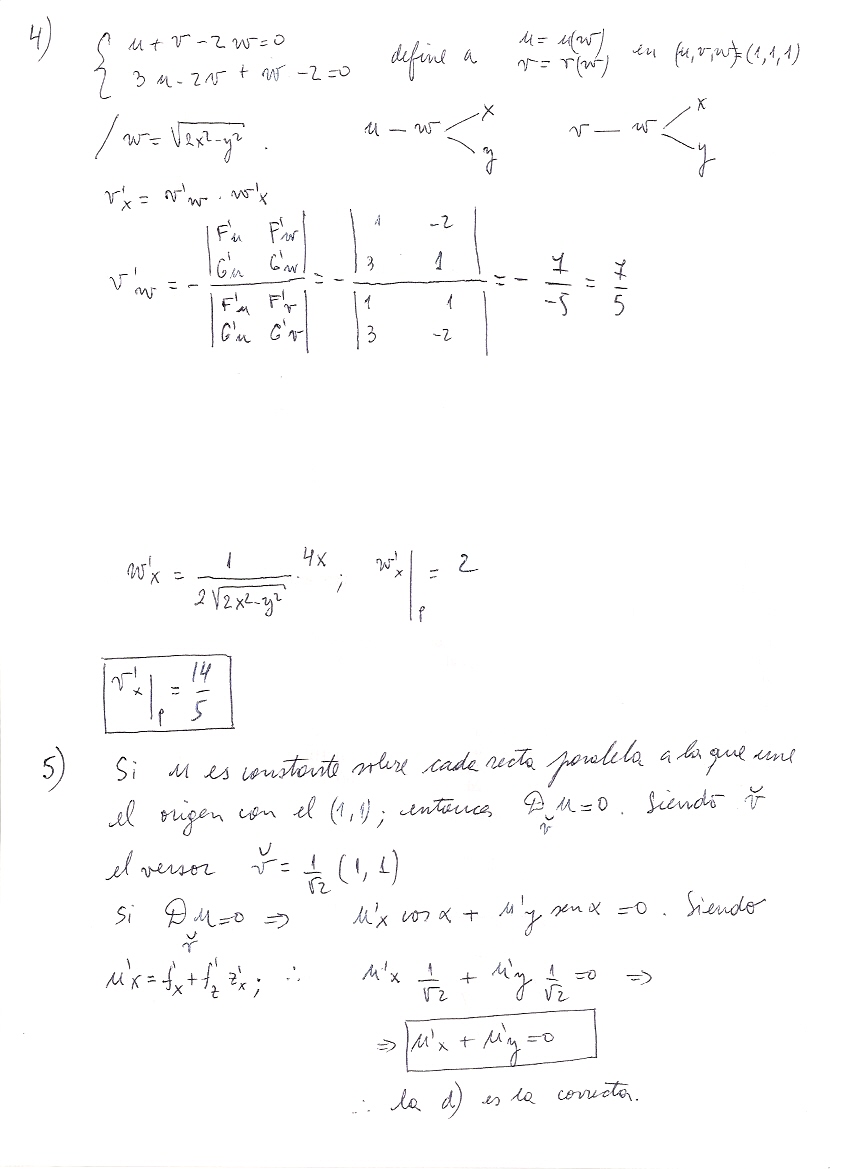 4) { u + v - 2w = 0 define a u = u(w) en (u,v,w)=(1,1,1)
3u - 2v + w - 2 = 0 v = v(w)
/ w = √(2x²-y²) . u — w < x y v — w < x y
v'x = v'w . w'x
v'w = - |F'u F'w G'u G'w| / |F'u F'v G'u G'v| = - |1 -2 3 1| / |1 1 3 -2| = - 7/-5 = 7/5
w'x = 1/(2√(2x²-y²)) . 4x ; w'x|p = 2
v'x|p = 14/5
5) Si u es constante sobre cada recta paralela a la que une
el origen con el (1,1); entonces Dv̌ u=0. Siendo v̌
el versor v̌ = 1/√2 (1,1)
Si Dv̌ u=0 ⇒ u'x cos α + u'y sen α = 0. Siendo
u'x = f'x + f'z z'x ; ∴ u'x 1/√2 + u'y 1/√2 = 0 ⇒
⇒ u'x + u'y = 0
∴ la d) es la correcta.